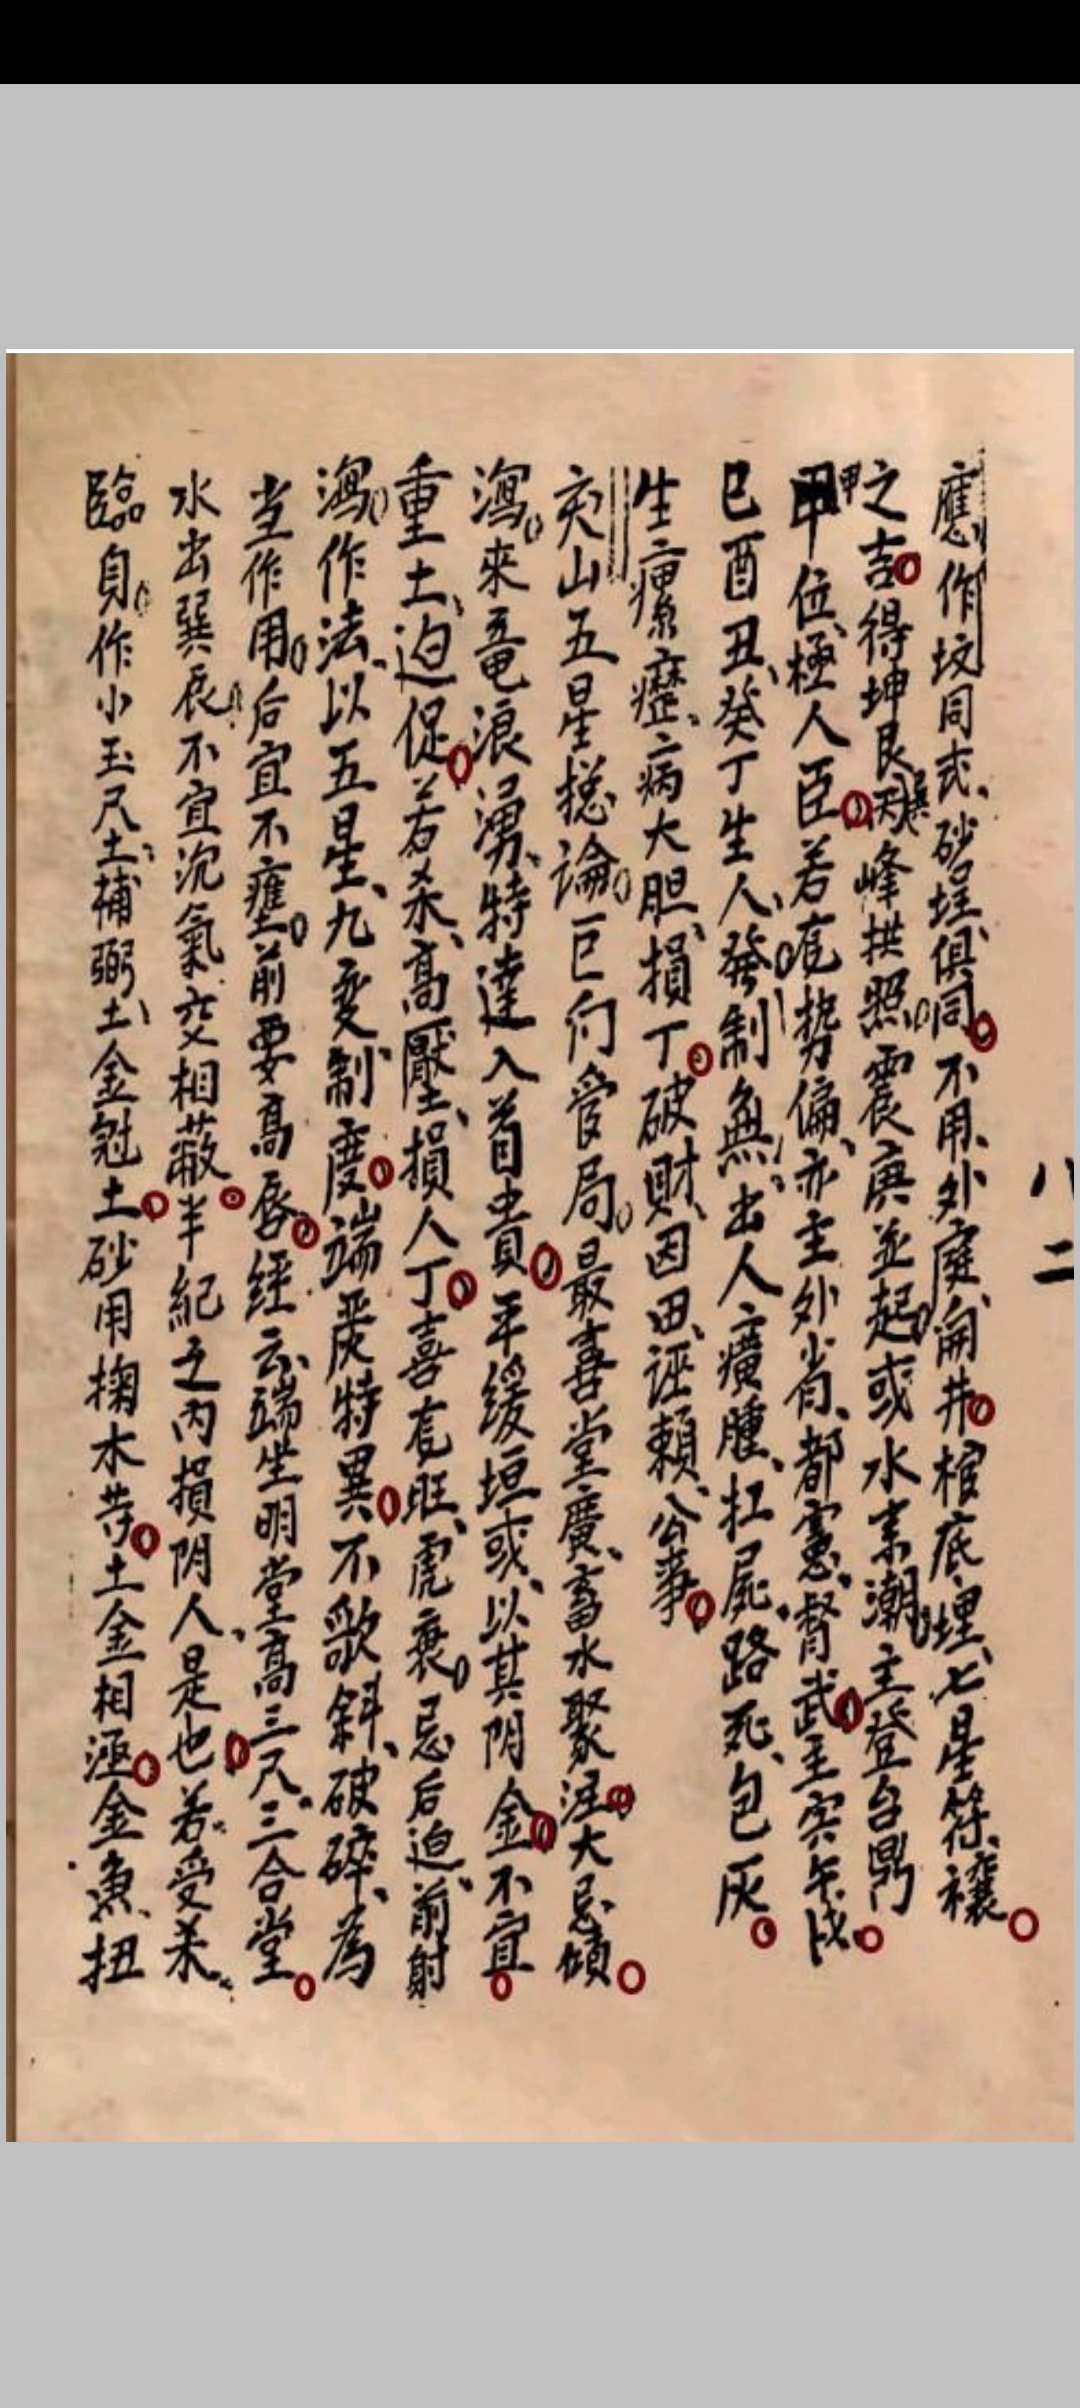 八二
應作坟同忒砂堆俱同不用外庭開井棺底埋七星符禳
之吉得坤艮丙巽峰拱照震庚並起或水來潮主登台鼎
甲甲位極人臣若龍勢偏亦主外省都憲督武主寅午戌
巳酉丑癸丁生人發制無出人癀腫扛屍路死包灰
生瘰癧病大胆損丁破財因田誣賴公事
亥山五星揔論巨门管局最喜堂廣畜水聚注大忌傾
瀉來竜浪湧特達入首贵平緩垣或以其阴金不宜
重土迫促若杀高壓損人丁喜龍旺虎衰忌后迫前射
瀉作法以五星九变制度端嚴特異不歌斜破碎為
当作用后宜不壅前要高唇經云端坐明堂高三尺三合堂
水出巽辰不宜沉氣交相蔽半紀之内損阴人是也若受杀
臨身作小玉尺土補弼土金冠土砂用掬木等土金相逐金魚扭